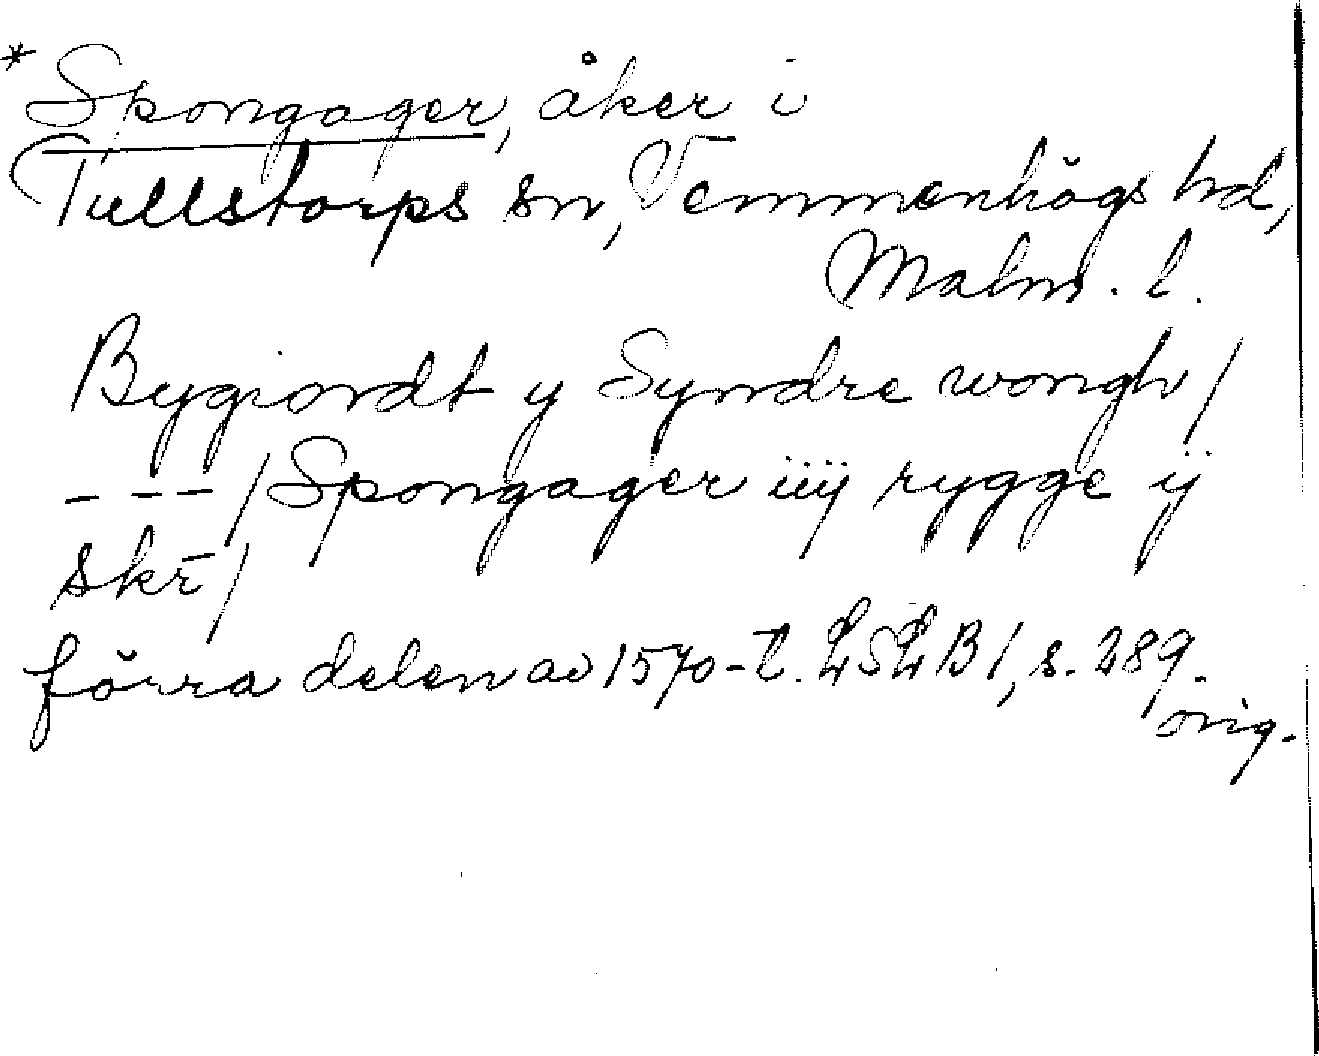 * Spongager, åker i
Tullstorps sn, Vemmenhögs hd,
Malm. l.
Bygiordt y Syndre wongh/
- - - /Spongager iiij rygge ij
skr̄/
förra delen av 1570-t. LSLB1, s. 289.
orig.